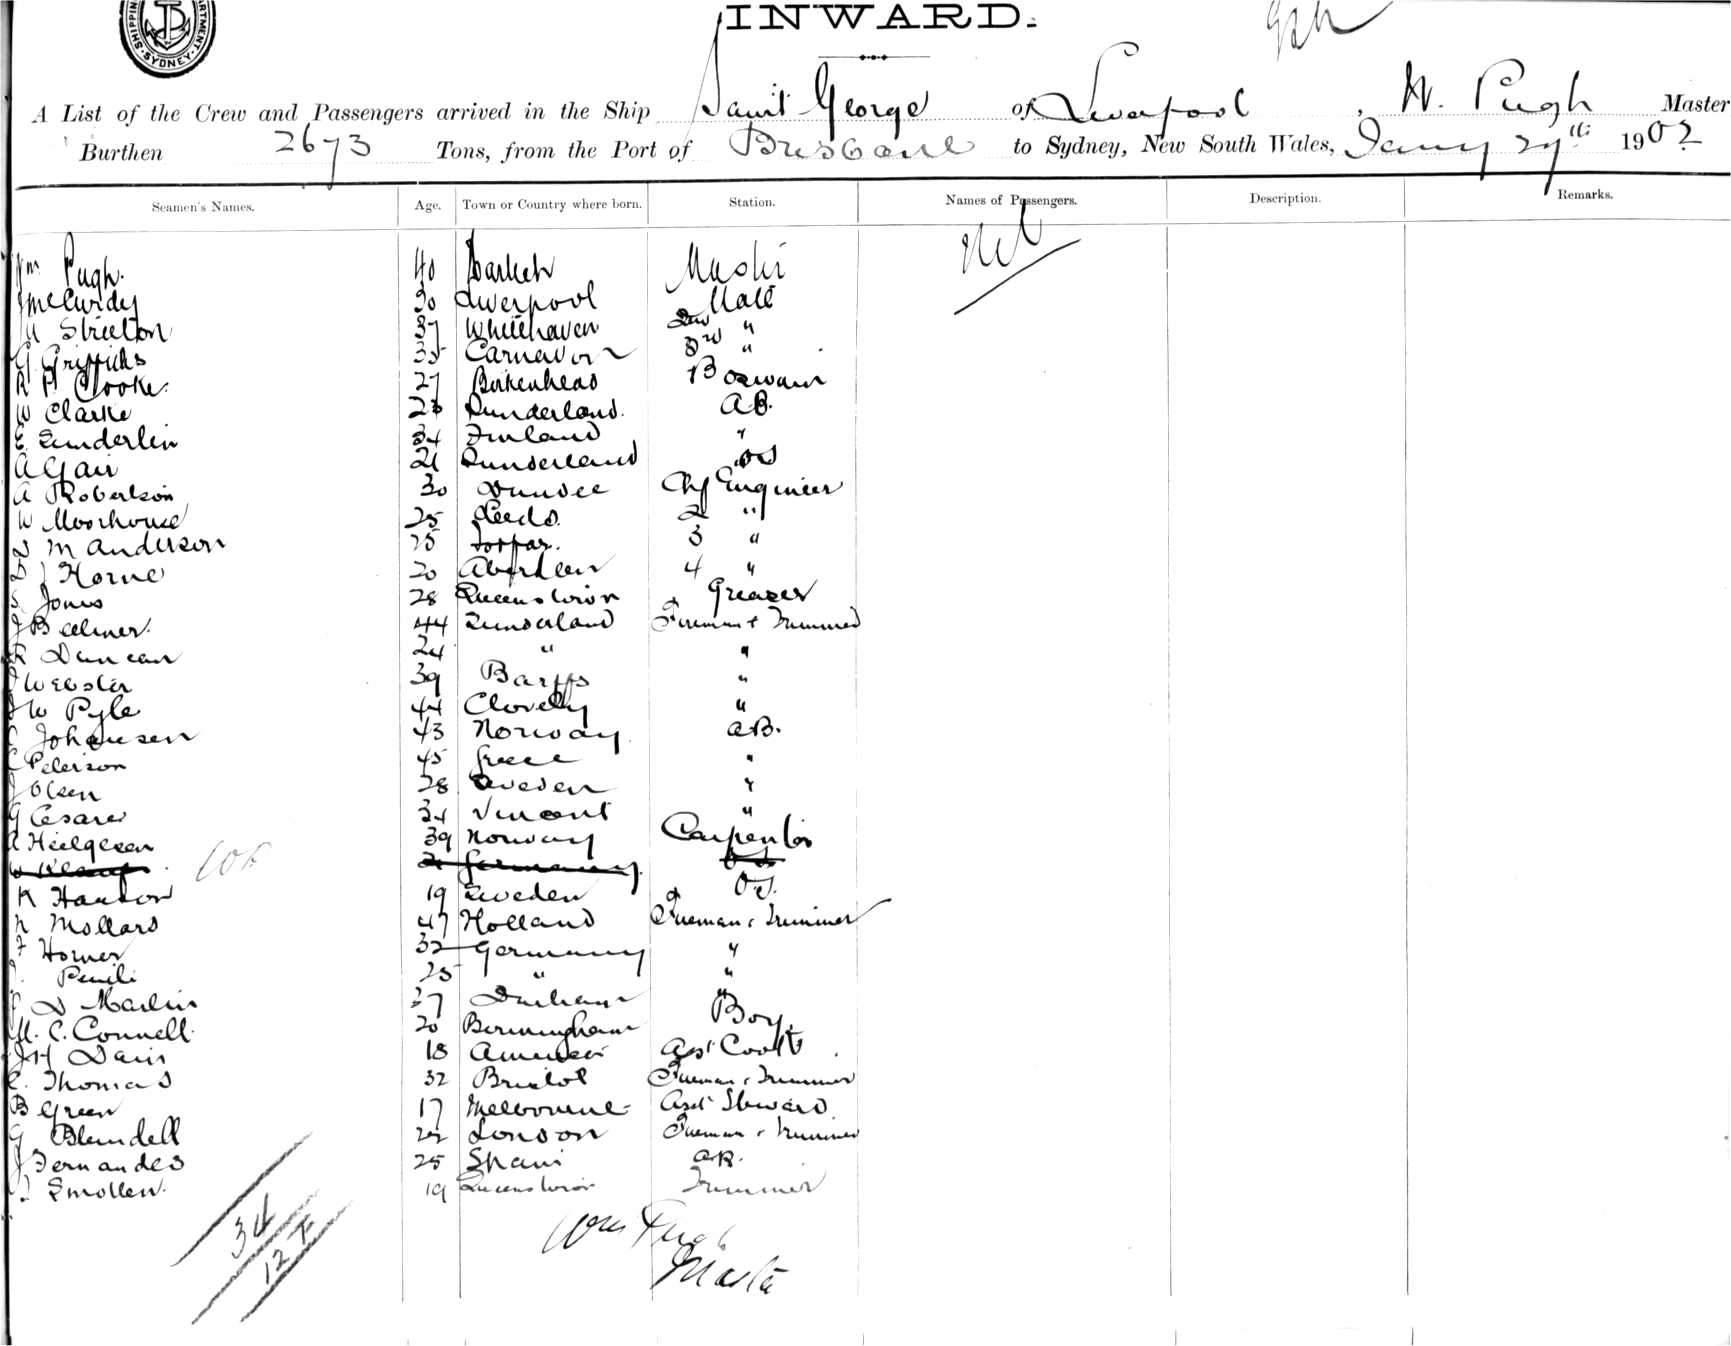 SHIPPING DEPARTMENT · SYDNEY ·
INWARD.
A List of the Crew and Passengers arrived in the Ship Saint George of Liverpool, W. Pugh Master
Burthen 2673 Tons, from the Port of Brisbane to Sydney, New South Wales, Jany 29th 1902
Seamen's Names. Age. Town or Country where born. Station. Names of Passengers. Description. Remarks.
Wm Pugh. 40 Master Nil
J McCurdy 30 Liverpool Mate
Streeton 37 Whitehaven 2nd "
G Griffiths 35 Carnavon 3rd "
R H Cooke. 27 Birkenhead Boswain
W Clarke 23 Sunderland. A.B.
E Sunderlin 34 Finland "
A Gair 21 Sunderland OS
A Robertson 30 Dundee Chf Engineer
W Moorhouse 25 Leeds. 2 "
D M Anderson 25 Forfar. 3 "
D J Horne 20 Aberdeen 4 "
S Jones 28 Queenstown Greaser
J Bellmer. 44 Sunderland Fireman & Trimmer
R Duncan 24 " "
J Webster 39 Banffs "
J W Pyle 44 Clovelly "
Johansen 43 Norway A.B.
C Peterson 45 Greece "
J Olsen 28 Sweden "
G Cesare 34 Vincent "
A Heilgesen 39 Norway Carpenter
W Klamp 21 Germany OS
K Hanson 19 Sweden O.S.
N Mollard 47 Holland Fireman & Trimmer
F Horner 32 Germany "
25 " "
D Martin 37 Durham "
M. C. Connell. 20 Birmingham Boy.
J H Davis 18 America Asst Cook
C. Thomas 32 Bristol Fireman & Trimmer
B Green 17 Melbourne Asst Steward
G Blundell 22 London Fireman & Trimmer
J Fernandes 25 Spain A.B.
J Smollen. 19 Queenstown Trimmer
34
12
Wm Pugh
Master